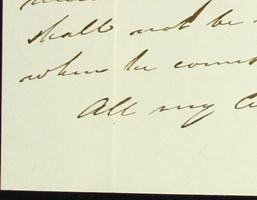 shall not be
when he comes
All my